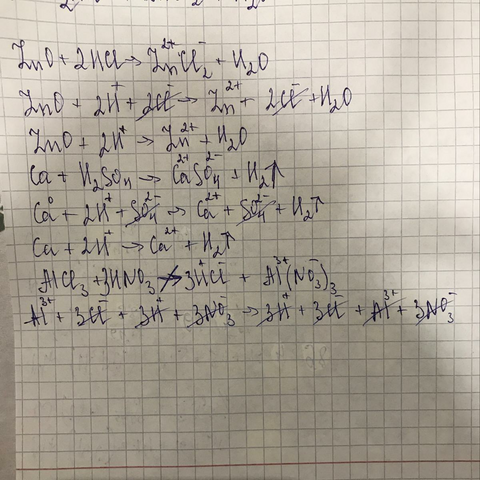 ZnO + 2HCl → Zn²⁺Cl₂⁻ + H₂O
ZnO + 2H⁺ + 2Cl⁻ → Zn²⁺ + 2Cl⁻ + H₂O
ZnO + 2H⁺ → Zn²⁺ + H₂O
Ca + H₂SO₄ → Ca²⁺SO₄²⁻ + H₂↑
Ca⁰ + 2H⁺ + SO₄²⁻ → Ca²⁺ + SO₄²⁻ + H₂↑
Ca + 2H⁺ → Ca²⁺ + H₂↑
AlCl₃ + 3HNO₃ ↛ 3H⁺Cl⁻ + Al³⁺(NO₃⁻)₃
Al³⁺ + 3Cl⁻ + 3H⁺ + 3NO₃⁻ → 3H⁺ + 3Cl⁻ + Al³⁺ + 3NO₃⁻